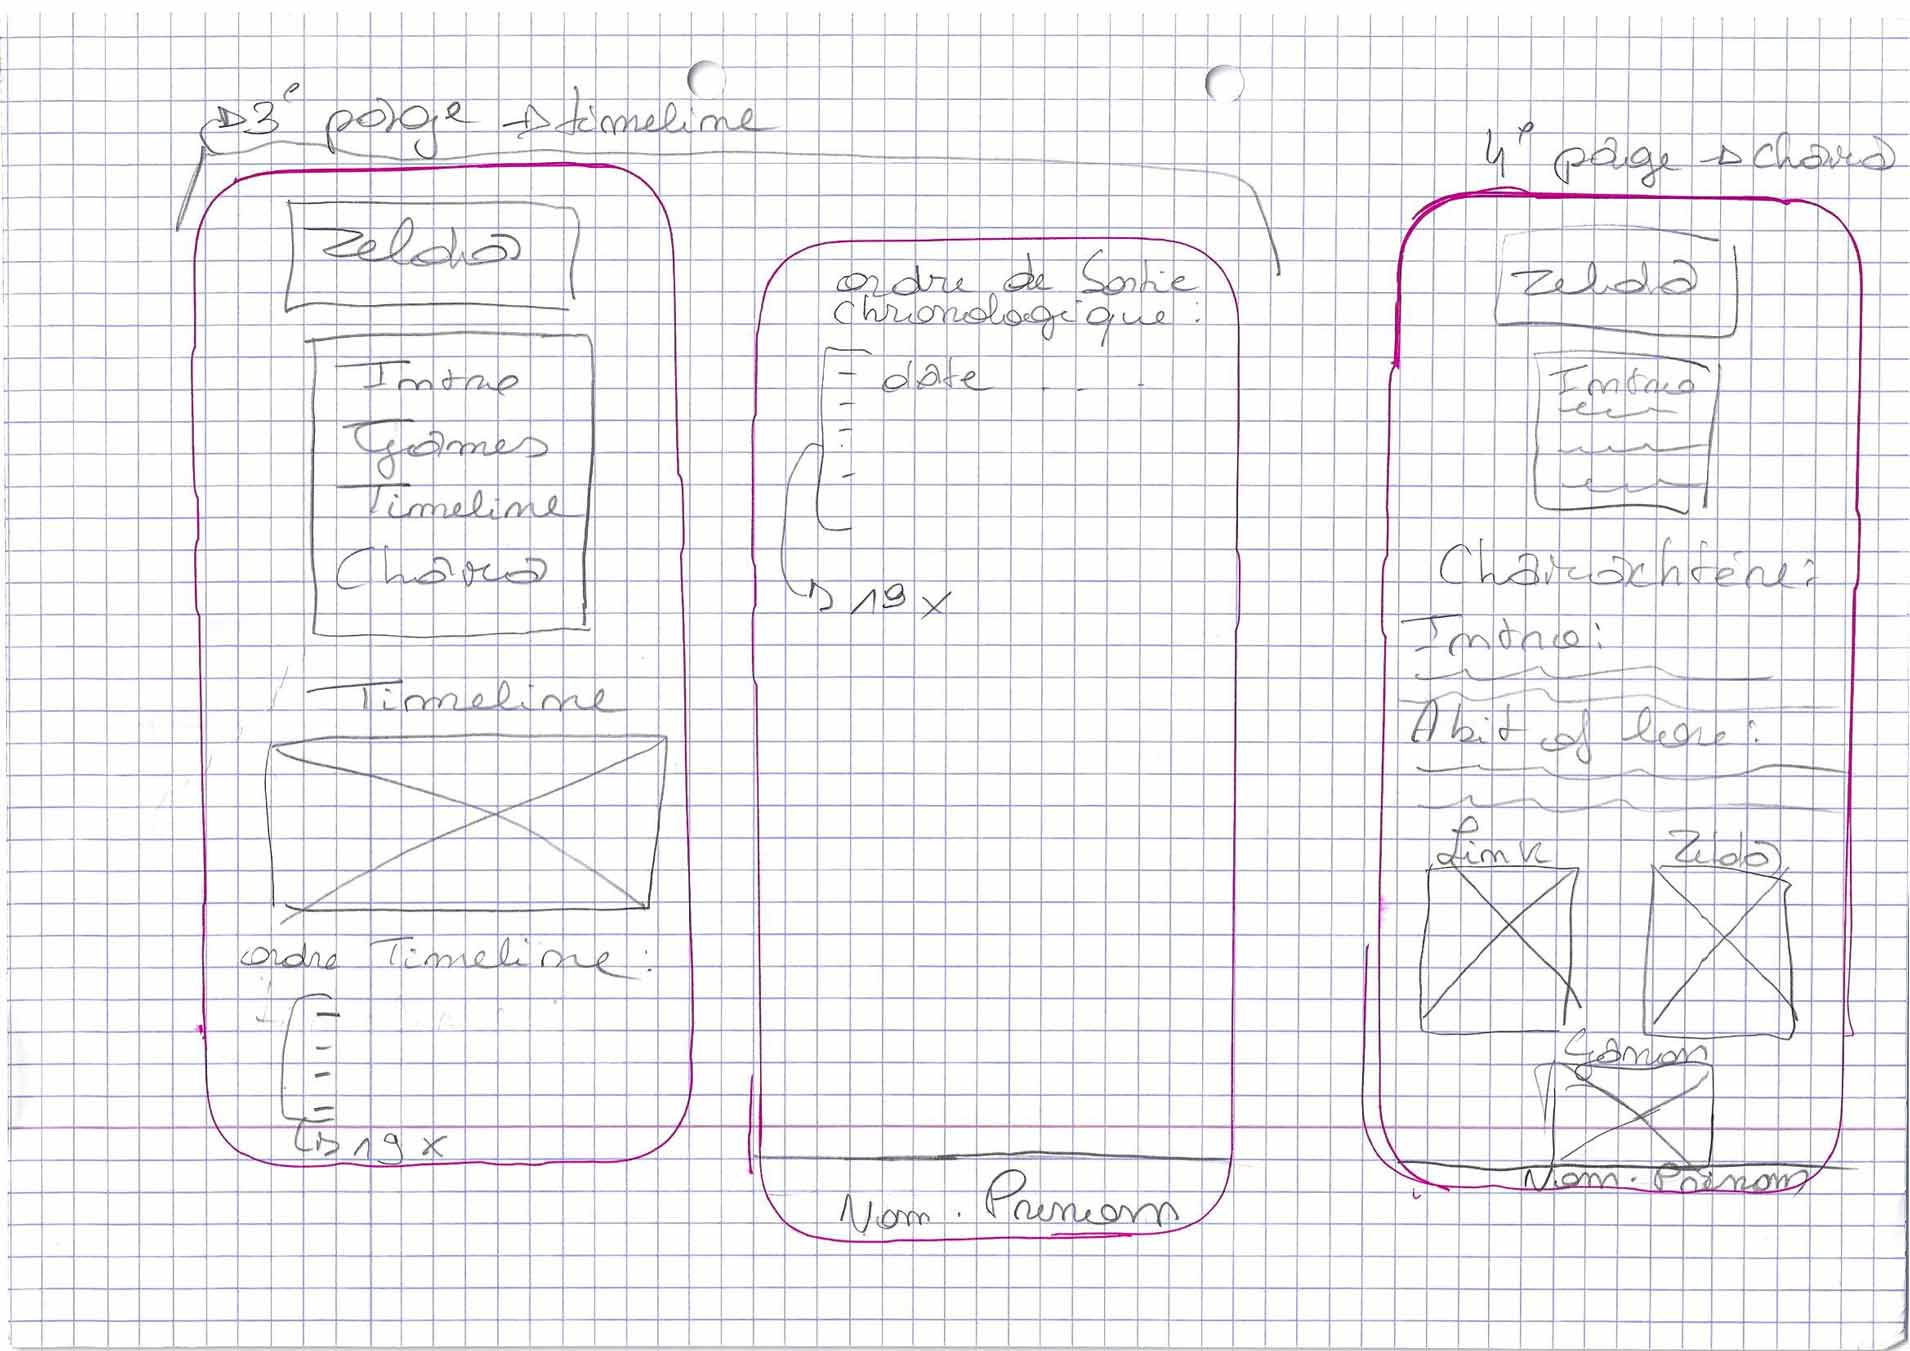 3e page → timeline
Zelda
Intro
Games
Timeline
Chara
Timeline
ordre Timeline :
19 x
ordre de Sortie
chronologique :
date . . .
19 x
Nom . Prenom
4e page → chara
Zelda
Intro
Charachtére :
Intro :
A bit of lore :
Link
Zelda
Ganon
Nom . Prénom